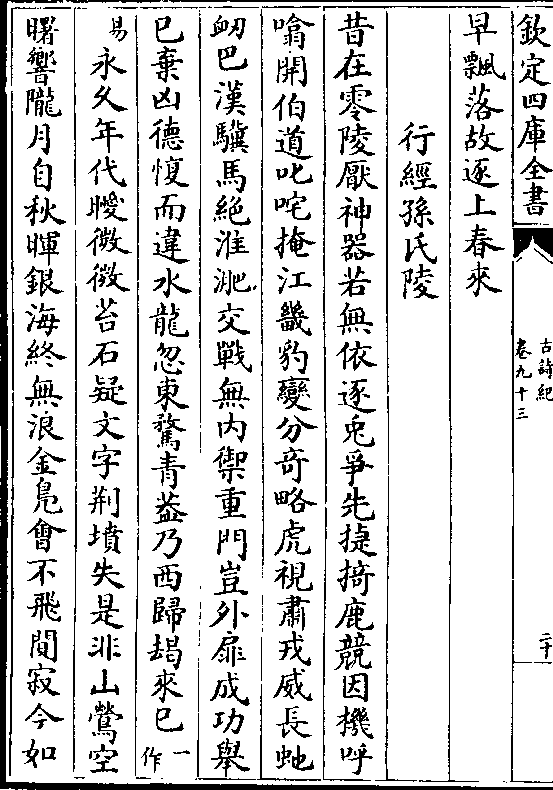 欽定四庫全書
古詩紀
卷九十三
二十
早飄落故逐上春來
行經孫氏陵
昔在零陵厭神器若無依逐兎爭先捷掎鹿競因機呼
噏開伯道叱咤掩江畿豹變分竒略虎視肅戎威長虵
衂巴漢驥馬絶淮淝交戰無内禦重門豈外扉成功舉
已棄凶德愎而違水龍忽東騖青葢乃西歸朅來已一作
易永久年代曖微微苔石疑文字荆墳失是非山鶯空
曙響隴月自秋暉銀海終無浪金鳬會不飛闃寂今如